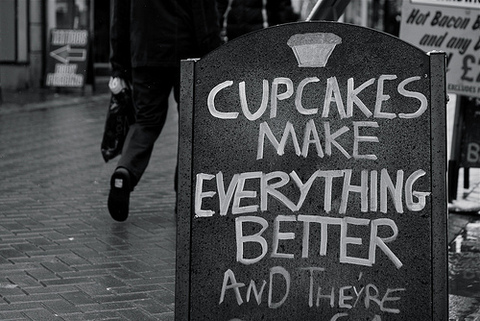 CUPCAKES
MAKE
EVERYTHING
BETTER
AND THEY'RE
Hot Bacon B
and any
£
EXCLUDES